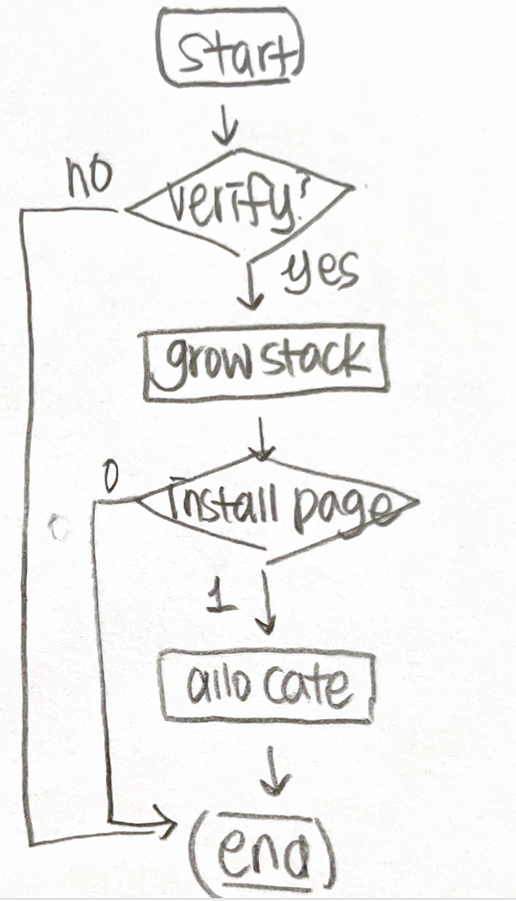 start
no
verify?
yes
grow stack
0
install page
1
allocate
end